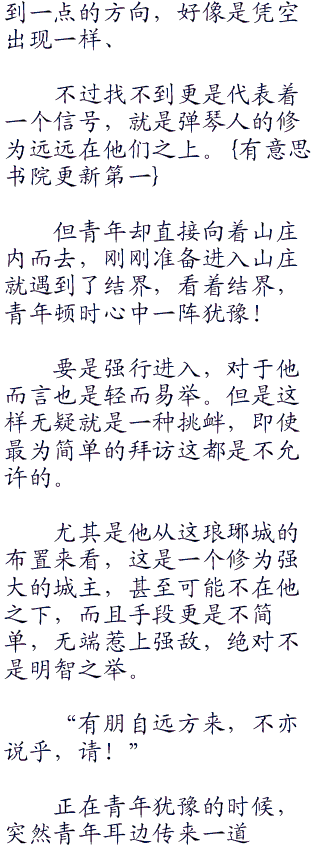 到一点的方向，好像是凭空
出现一样、
不过找不到更是代表着
一个信号，就是弹琴人的修
为远远在他们之上。{有意思
书院更新第一}
但青年却直接向着山庄
内而去，刚刚准备进入山庄
就遇到了结界，看着结界，
青年顿时心中一阵犹豫！
要是强行进入，对于他
而言也是轻而易举。但是这
样无疑就是一种挑衅，即使
最为简单的拜访这都是不允
许的。
尤其是他从这琅琊城的
布置来看，这是一个修为强
大的城主，甚至可能不在他
之下，而且手段更是不简
单，无端惹上强敌，绝对不
是明智之举。
“有朋自远方来，不亦
说乎，请！”
正在青年犹豫的时候，
突然青年耳边传来一道